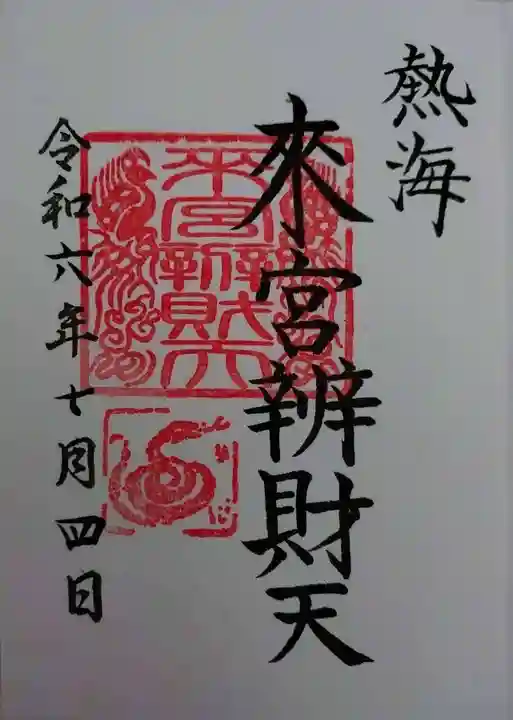 熱海
來宮辨財天
來宮辨財天
令和六年七月四日